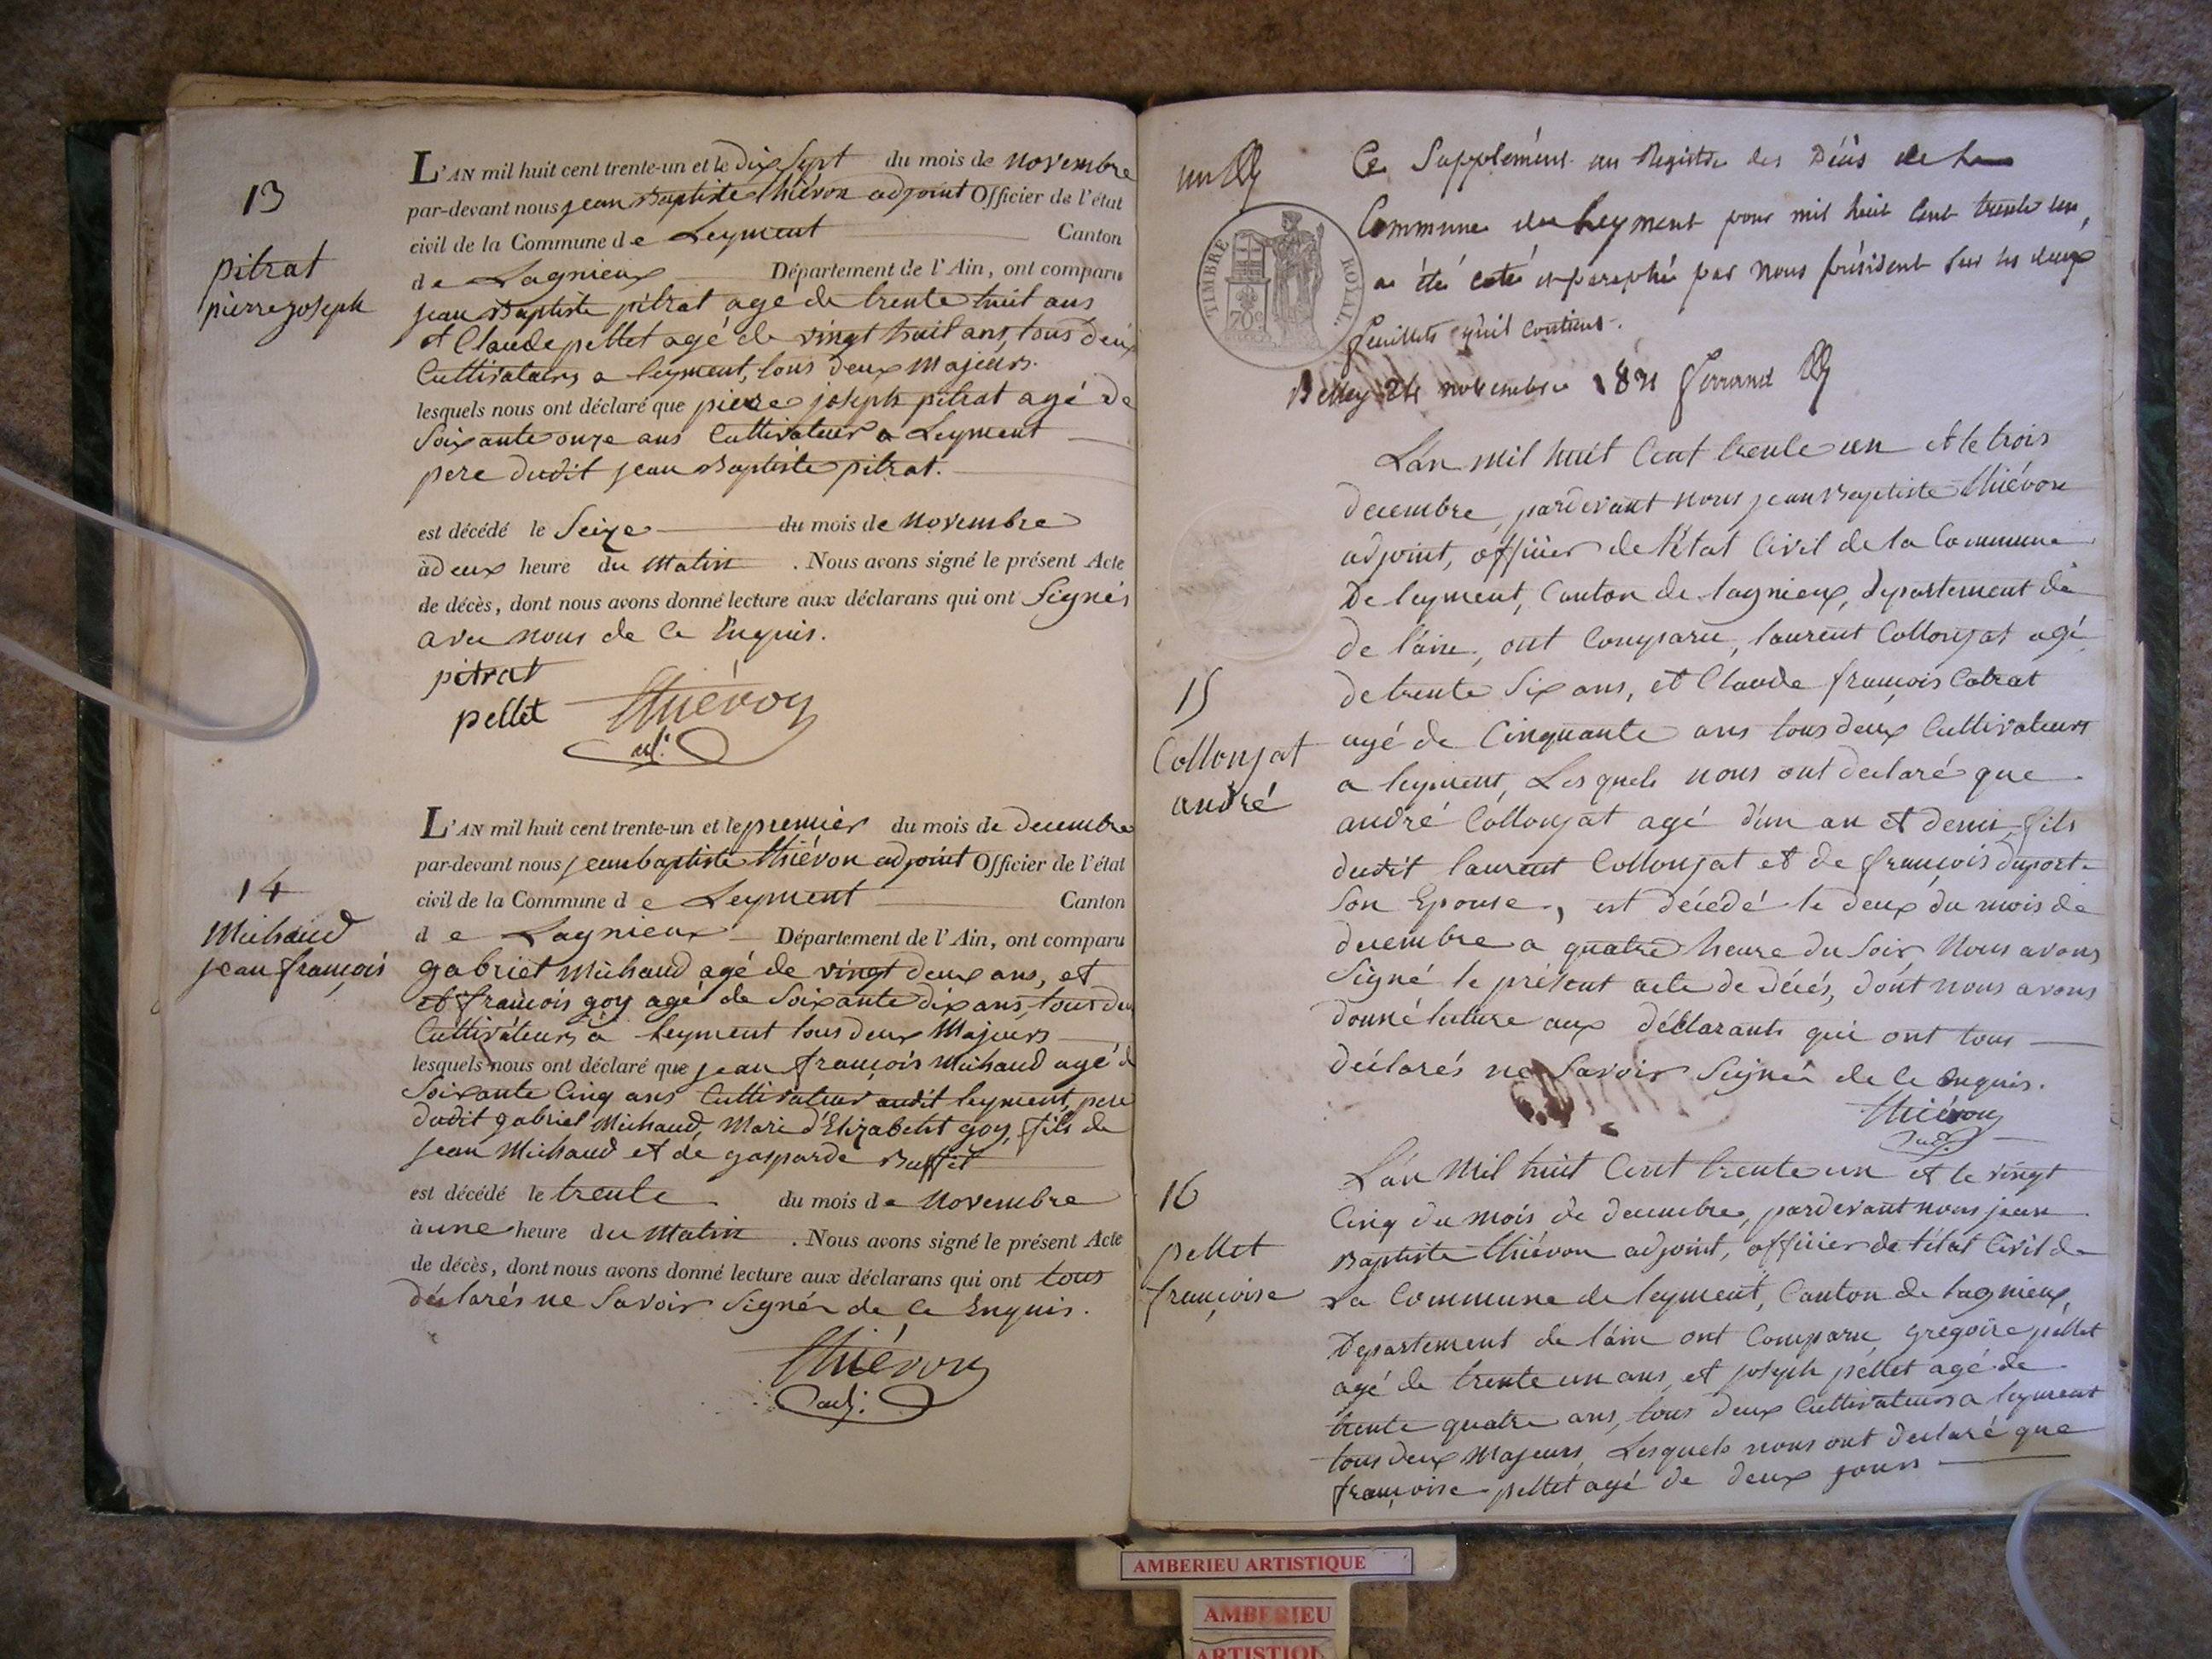 13
pitrat
pierre joseph
L'AN mil huit cent trente-un et le dix sept du mois de novembre
par-devant nous jean Baptiste thiévon adjoint Officier de l'état
civil de la Commune de Leyment Canton
de Lagnieux Département de l'Ain, ont comparu
jean Baptiste pitrat age de trente huit ans
et Claude pellet agé de vingt huit ans, tous deux
Cultivateurs a leyment, tous deux majeurs.
lesquels nous ont déclaré que pierre joseph pitrat agé de
Soixante onze ans Cultivateur a Leyment
pere dudit jean Baptiste pitrat.
est décédé le Seize du mois de novembre
à deux heure du Matin . Nous avons signé le présent Acte
de décès, dont nous avons donné lecture aux déclarans qui ont Signés
avec nous de Ce Enquis.
pitrat
pellet thiévon
adj.
14
Michaud
jean françois
L'AN mil huit cent trente-un et le premier du mois de decembre
par-devant nous jean baptiste thiévon adjoint Officier de l'état
civil de la Commune de Leyment Canton
de Lagnieux Département de l'Ain, ont comparu
gabriel Michaud agé de vingt deux ans, et
et françois goy agé de Soixante dix ans, tous deux
Cultivateurs à leyment tous deux Majeurs
lesquels nous ont déclaré que jean françois Michaud agé de
Soixante Cinq ans Cultivateur audit leyment, pere
dudit gabriel Michaud, Mari d'Elizabeht goy, fils de
jean Michaud et de gasparde Buffet
est décédé le trente du mois de Novembre
à une heure du Matin . Nous avons signé le présent Acte
de décès, dont nous avons donné lecture aux déclarans qui ont tous
déclarés ne Savoir Signér de Ce Enquis.
thiévon
adj.
un
TIMBRE ROYAL.
70c
Ce Supplément au Registre des Décès de la
Commune de Leyment pour mil huit Cent trente un,
a été coté et paraphé par Nous président sur les deux
feuillets qu'il Contient.
Belley 24 novembre 1831 Ferrand
15
Collonjat
andré
L'an mil huit Cent trente un et le trois
decembre, pardevant nous jean Baptiste thiévon
adjoint, officier de l'état Civil de la Commune
De leyment, Canton de lagnieux, departement de
de l'ain, ont Comparu, laurent Collonjat agé
de trente Six ans, et Claude françois Catrat
agé de Cinquante ans tous deux Cultivateurs
a leyment, Lesquels nous ont declaré que
andré Collonjat agé d'un an et demi, fils
dudit laurent Collonjat et de françois duport
Son Epouse, est décedé le deux du mois de
decembre a quatre heure du Soir, Nous avons
Signé le présent acte de décès, dont nous avons
donné lecture aux déclarants qui ont tous
déclarés ne Savoir Signér de Ce Enquis.
thiévon
adj.
16
pellet
françoise
L'an Mil huit Cent trente un et le vingt
Cinq du mois de decembre, pardevant nous jean
Baptiste thiévon adjoint, officier de l'état Civil de
La Commune de leyment, Canton de lagnieux,
Departement de l'ain ont Comparu grégoire pellet
agé de trente un ans, et joseph pellet agé de
trente quatre ans, tous deux Cultivateurs a leyment
tous deux Majeurs, Lesquels nous ont declaré que
françoise pellet agé de deux jours
AMBERIEU ARTISTIQUE
AMBERIEU
ARTISTIQU